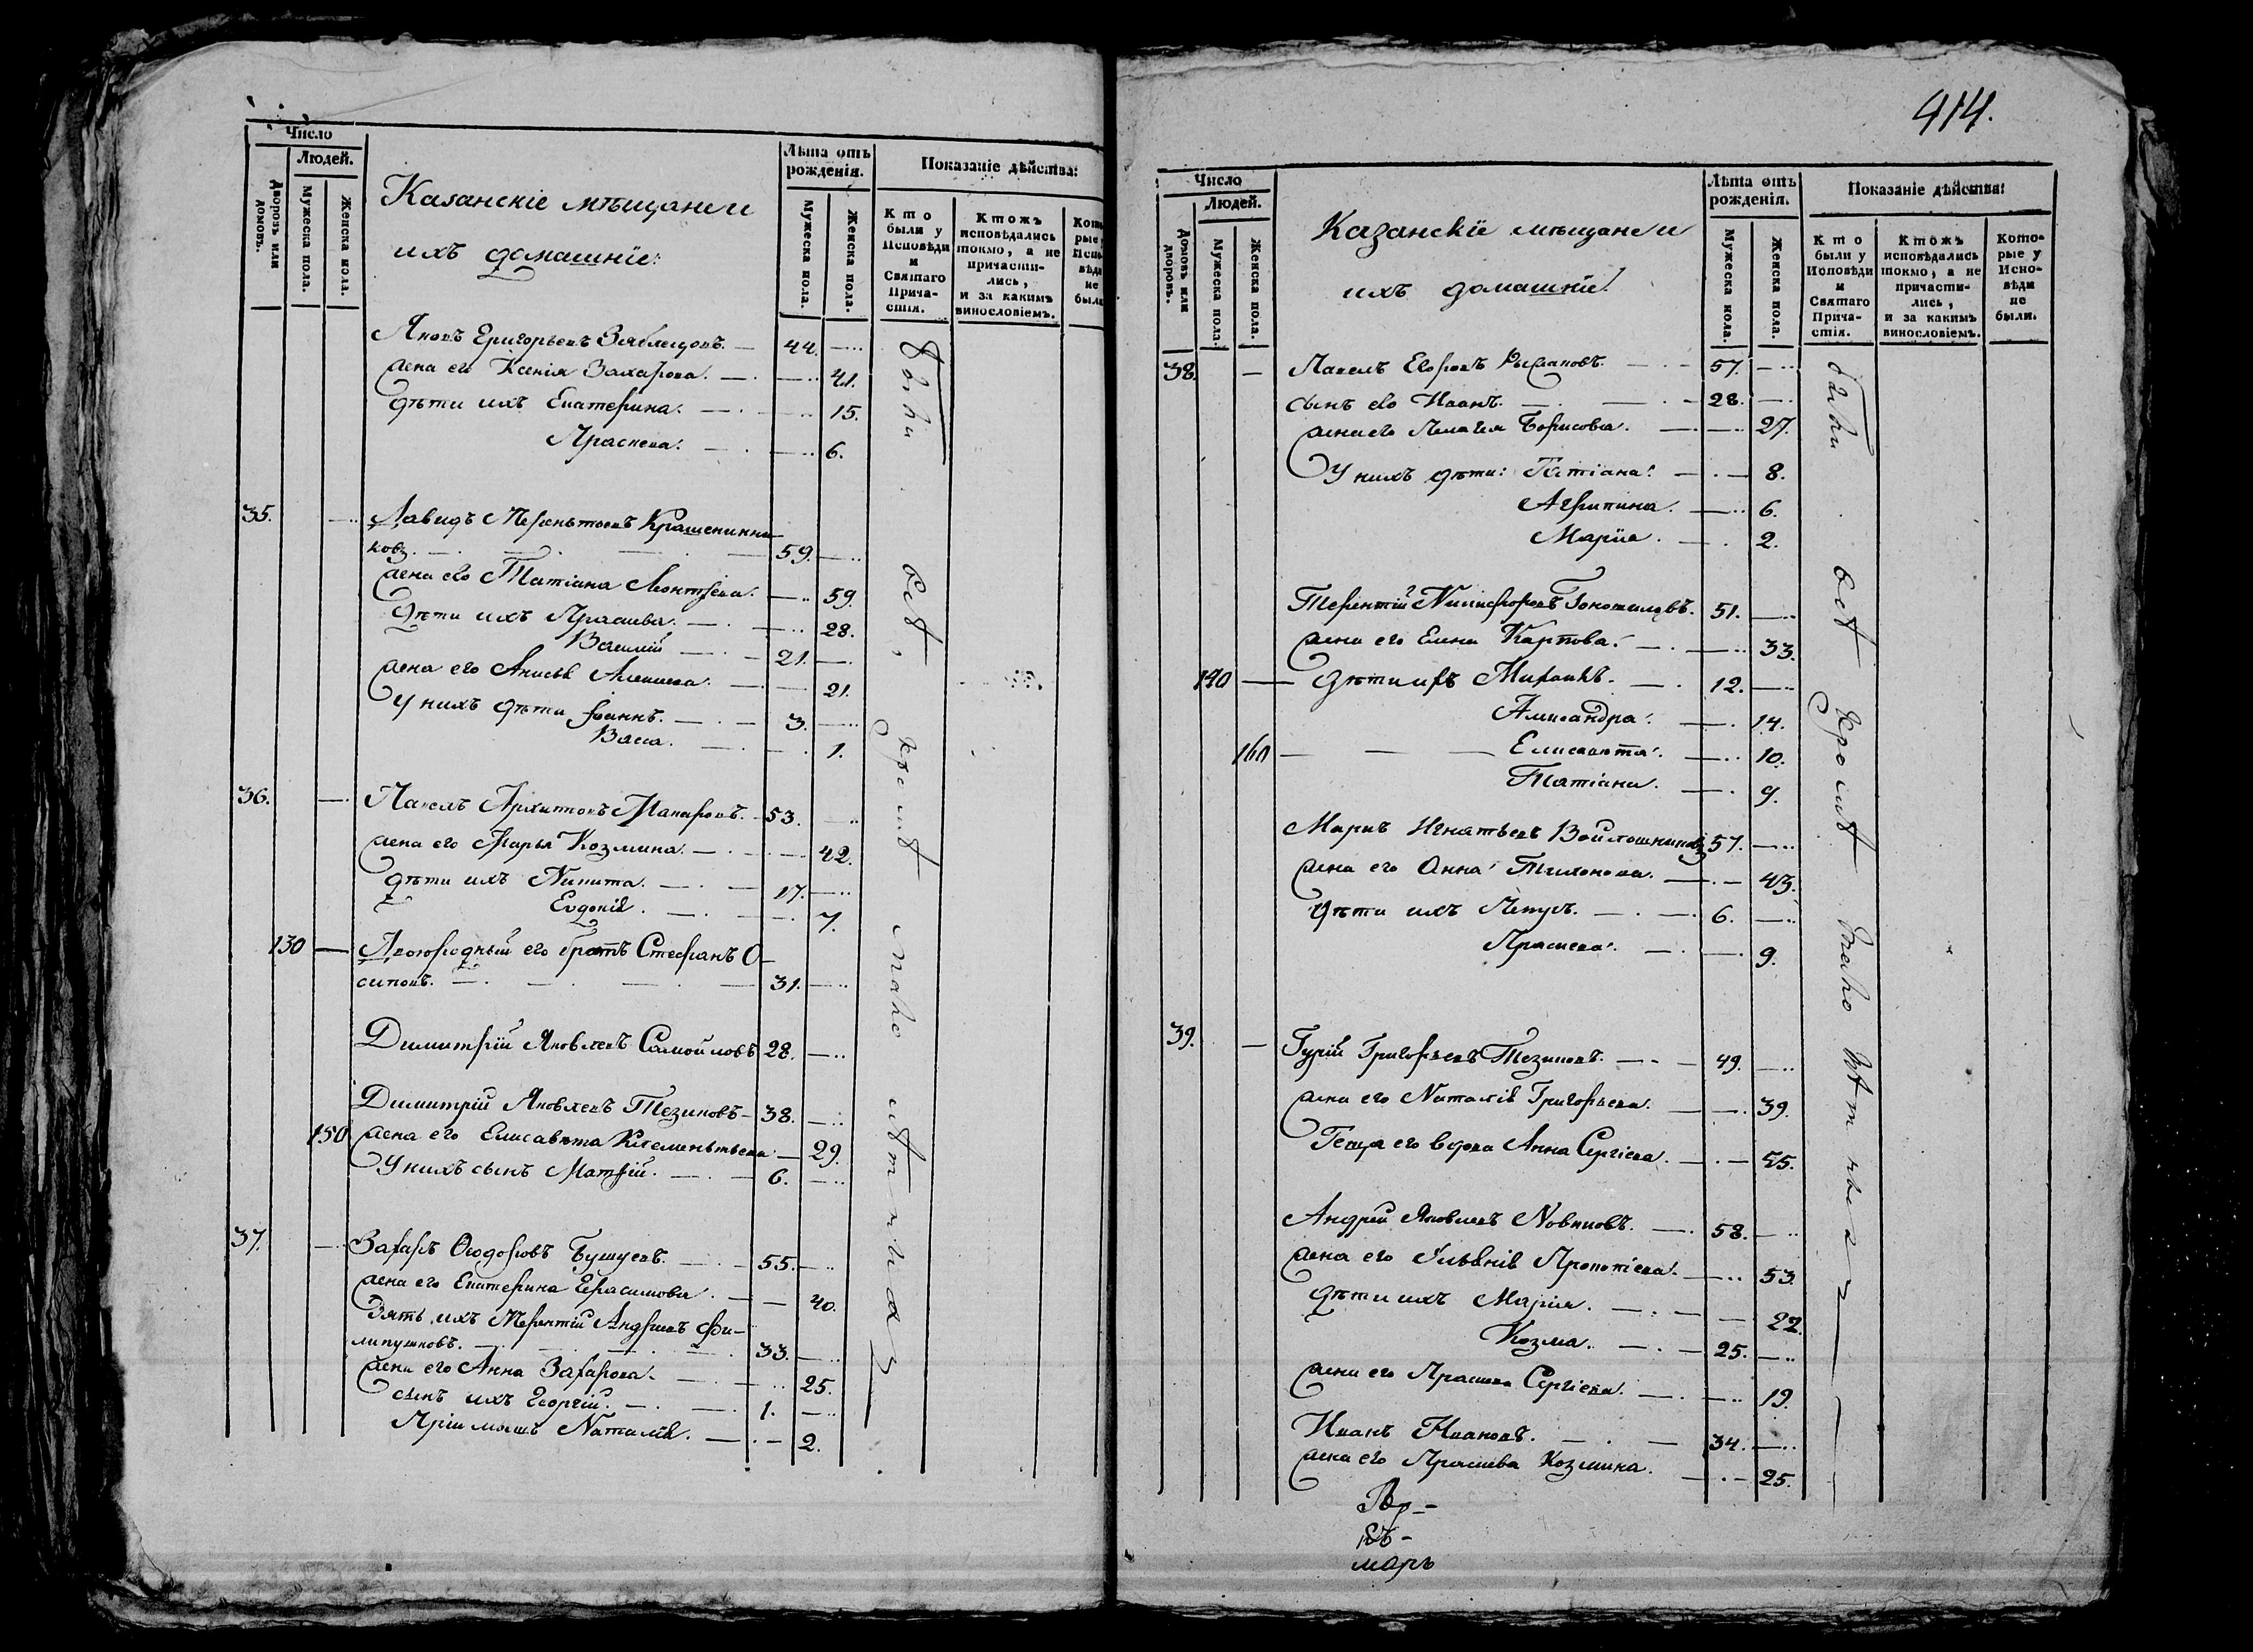 Число
Людей.
Дворовъ или домовъ.
Мужеска пола.
Женска пола.
Казанскіе мѣщане и
ихъ домашніе:
Лѣта отъ рожденія.
Мужеска пола.
Женска пола.
Показаніе дѣйства:
Кто были у Исповѣди и Святаго Причастія.
Ктожъ исповѣдались токмо, а не причастились, и за какимъ винословіемъ.
Яковъ Григорьевъ Зяблецовъ. — 44.
жена его Ксенія Захарова. — 41.
дѣти ихъ Екатерина. — 15.
Праскева. — 6.
35. Давидъ Терентьевъ Крашенинни-
ковъ. — 59.
жена его Татіана Леонтьева. — 59.
дѣти ихъ Праскева. — 28.
Василій — 21.
жена его Анисья Алексиева. — 21.
У нихъ дѣти Іоаннъ. — 3.
Васса. — 1.
36. Павелъ Архиповъ Макаровъ. 53.
жена его Марья Козмина. — 42.
дѣти ихъ Никита. — 17.
Евдокія. — 7.
130 — Двоюродный его братъ Стефанъ О-
сиповъ. — 31.
Димитрій Яковлевъ Самойловъ 28.
Димитрій Яковлевъ Тезиковъ — 38.
150 жена его Елисавета Клементьева — 29.
У нихъ сынъ Матвій. — 6.
37. Захаръ Ѳеодоровъ Бушуевъ. — 55.
жена его Екатерина Герасимова. — 40.
Зять ихъ Терентій Андреевъ Фи-
липушковъ. — 33.
жена его Анна Захарова. — 25.
сынъ ихъ Георгій. — 1.
Пріимышъ Наталія. — 2.
были всѣ, кромѣ малолѣтныхъ
414.
Число
Людей.
Домовъ или дворовъ.
Мужеска пола.
Женска пола.
Казанскіе мѣщане и
ихъ домашніе!
Лѣта отъ рожденія.
Мужеска пола.
Женска пола.
Показаніе дѣйства:
Кто были у Исповѣди и Святаго Причастія.
Ктожъ исповѣдались токмо, а не причастились, и за какимъ винословіемъ.
Которые у Исповѣди не были.
38. — Павелъ Егоровъ — 57.
сынъ его Иванъ. — 28.
жена его Пелагея Борисова. — 27.
У нихъ дѣти: Татіана. — 8.
Агрипина. — 6.
Марія. — 2.
Терентій Никифоровъ 51.
жена его Елена Карпова. — 33.
140 — дѣти ихъ Михаилъ. — 12.
Александра. — 14.
160 — Елисавета. — 10.
Татіана. — 9.
Маркъ Игнатьевъ Войлошниковъ 57.
жена его Анна Тихонова. — 43.
дѣти ихъ Петръ. — 6.
Праскева. — 9.
39. — Гурій Григорьевъ Тезиковъ. — 49.
жена его Наталія Григорьева. — 39.
Теща его вдова Анна Сергіева. — 55.
Андрей Яковлевъ Новиковъ. — 58.
жена его Ульянія Прокопіева. — 53.
дѣти ихъ Марія. — 22.
Козма. — 25.
жена его Праскева Сергіева. — 19.
Иванъ Ивановъ. — 34.
жена его Праскева Козмина. — 25.
были всѣ кромѣ малолѣтныхъ